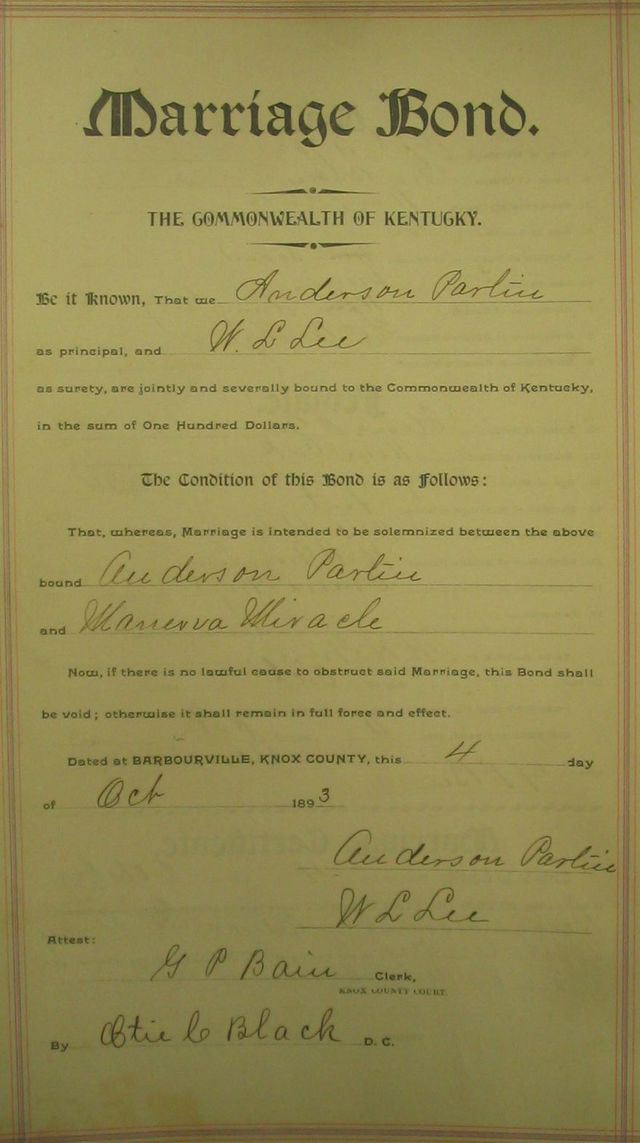 Marriage Bond.
THE COMMONWEALTH OF KENTUCKY.
Be it Known, That we Anderson Parlin
as principal, and W. L Lee
as surety, are jointly and severally bound to the Commonwealth of Kentucky,
in the sum of One Hundred Dollars.
The Condition of this Bond is as Follows:
That, whereas, Marriage is intended to be solemnized between the above
bound Anderson Parlin
and Manerva Miracle
Now, if there is no lawful cause to obstruct said Marriage, this Bond shall
be void; otherwise it shall remain in full force and effect.
Dated at BARBOURVILLE, KNOX COUNTY, this 4 day
of Oct 1893
Anderson Parlin
W L Lee
Attest:
G P Bain Clerk,
KNOX COUNTY COURT.
By Otie C Black D. C.